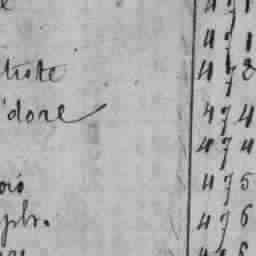 471
471
tiste 473
idore 474
474
ois 475
ph. 476